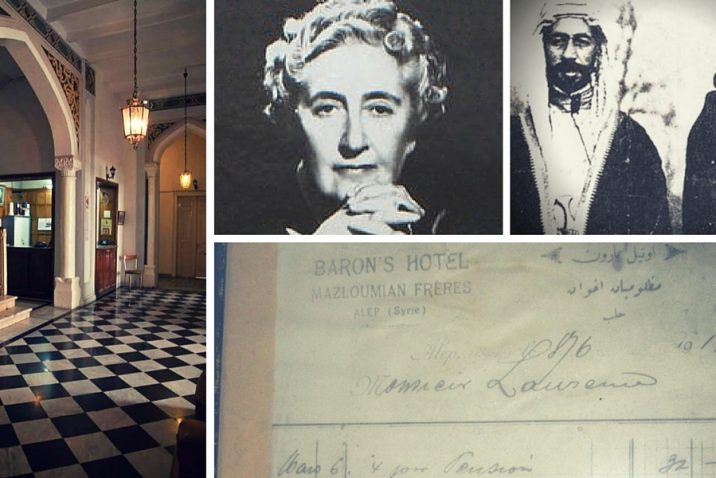 BARON'S HOTEL
MAZLOUMIAN FRÈRES
ALEP (Syrie)
اوتيل بارون
مظلوميان اخوان
حلب
Alep, 8/6 191
Monsieur Laurence
Mars 6 4 jour Pension 32 -